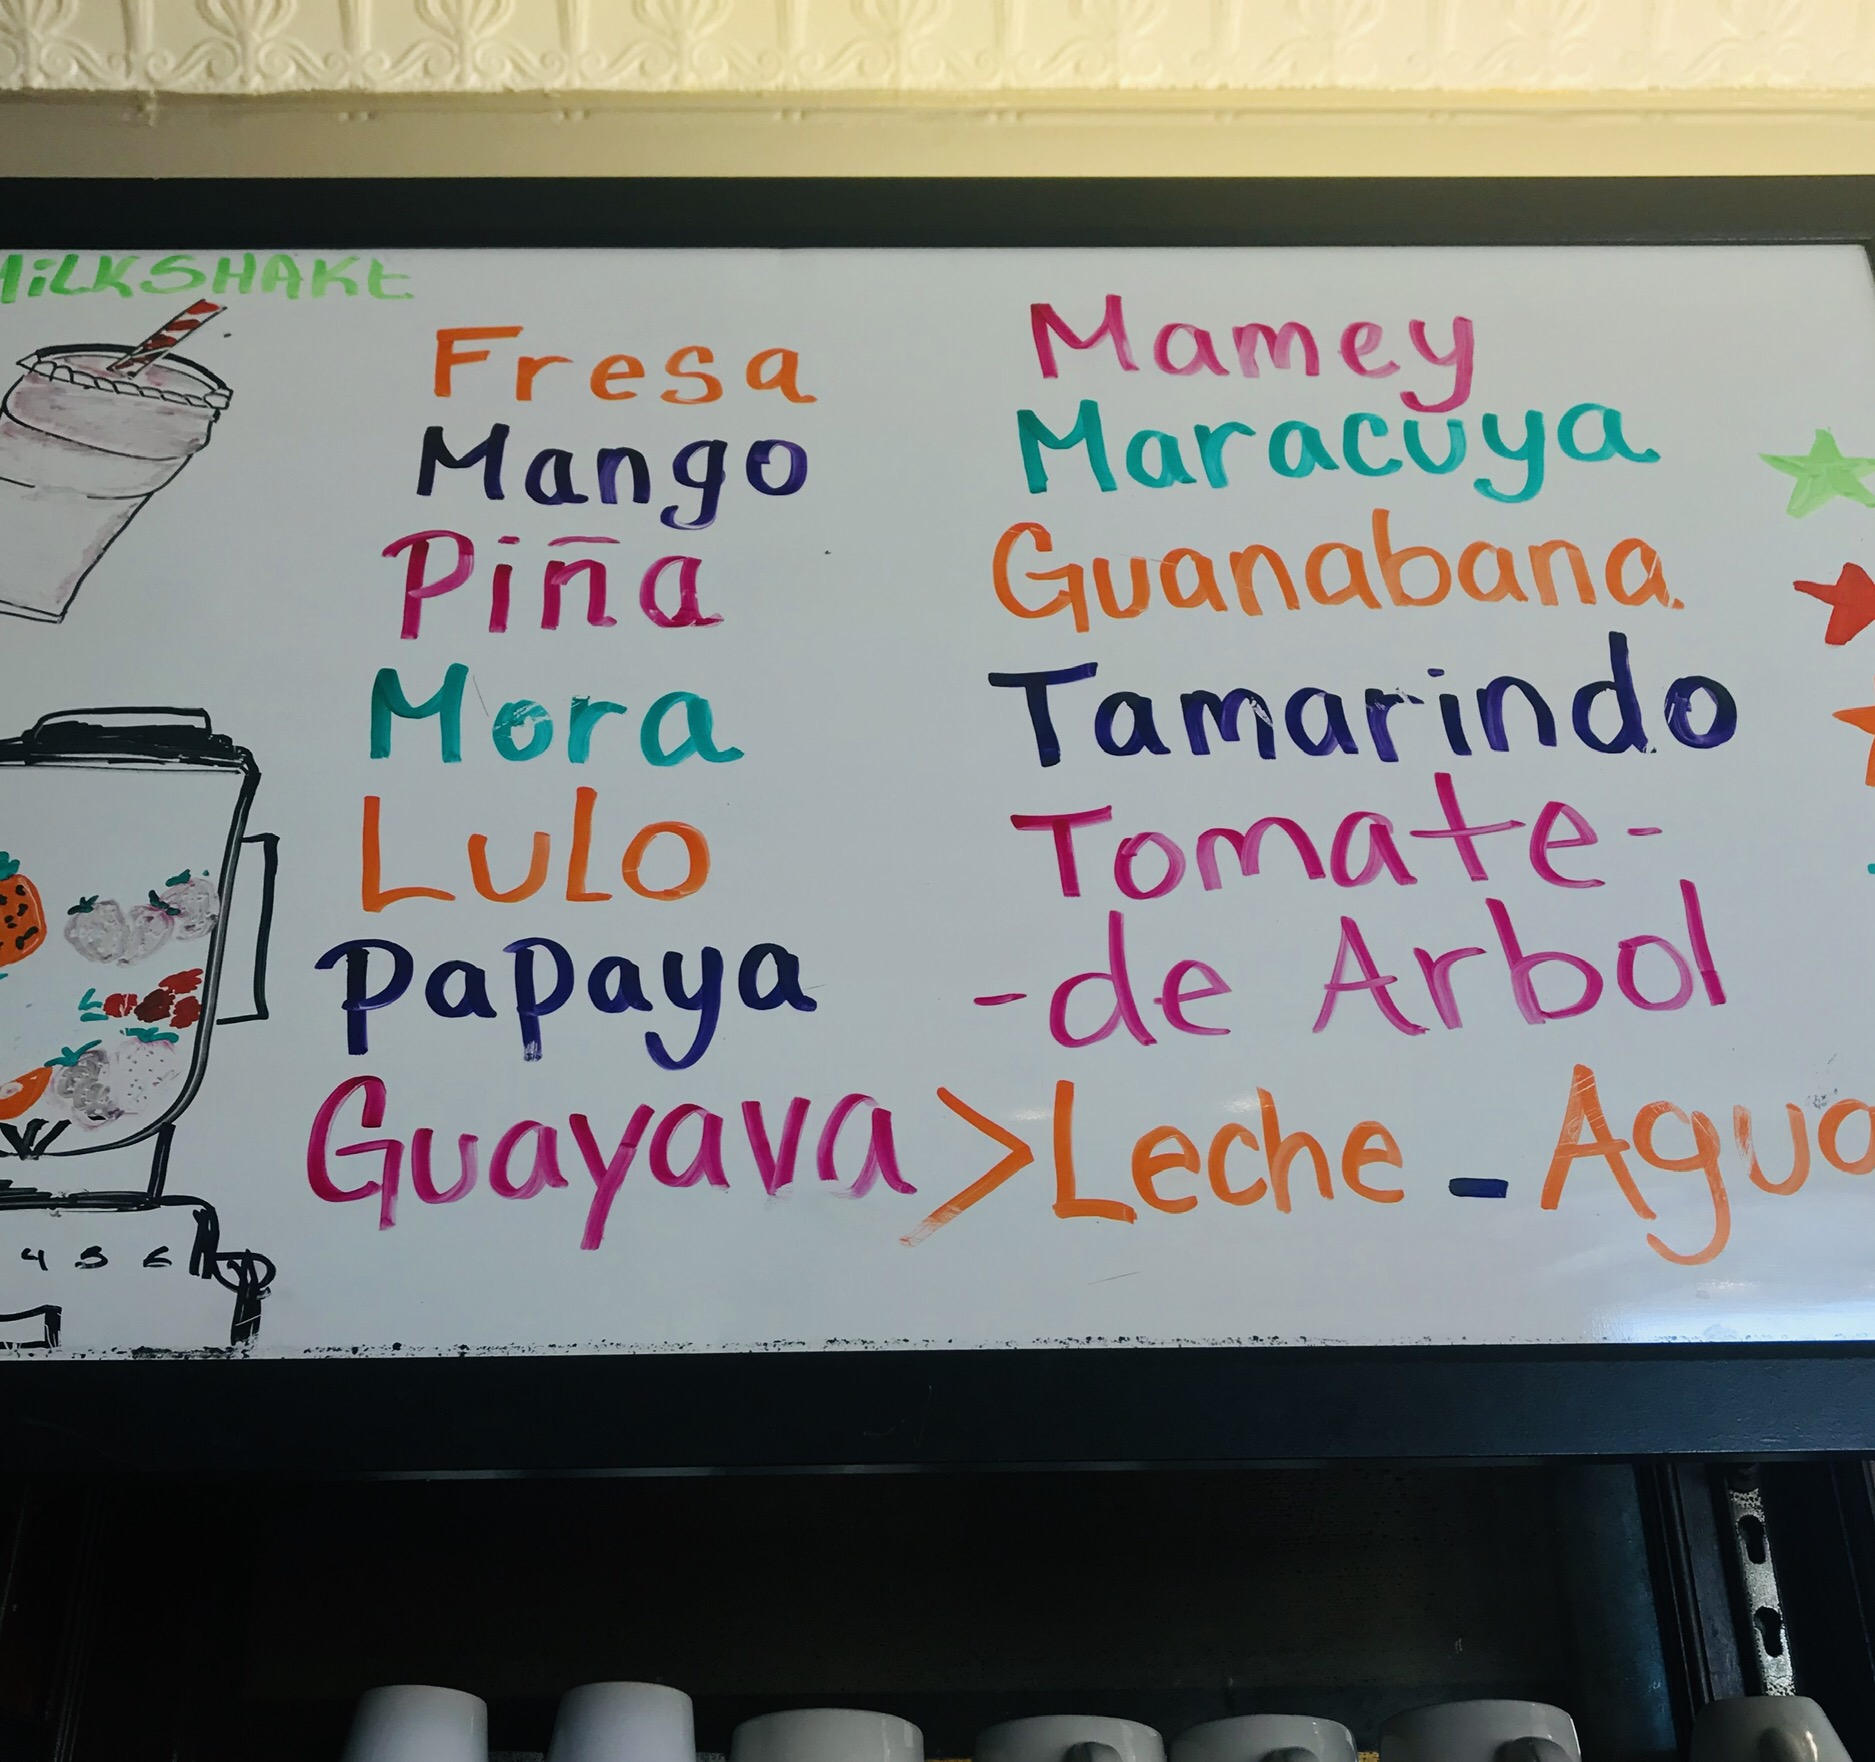 MiLKSHAKE
Fresa
Mango
Piña
Mora
Lulo
Papaya
Guayava > Leche - Agua
Mamey
Maracuya
Guanabana
Tamarindo
Tomate-
-de Arbol
4 5 6